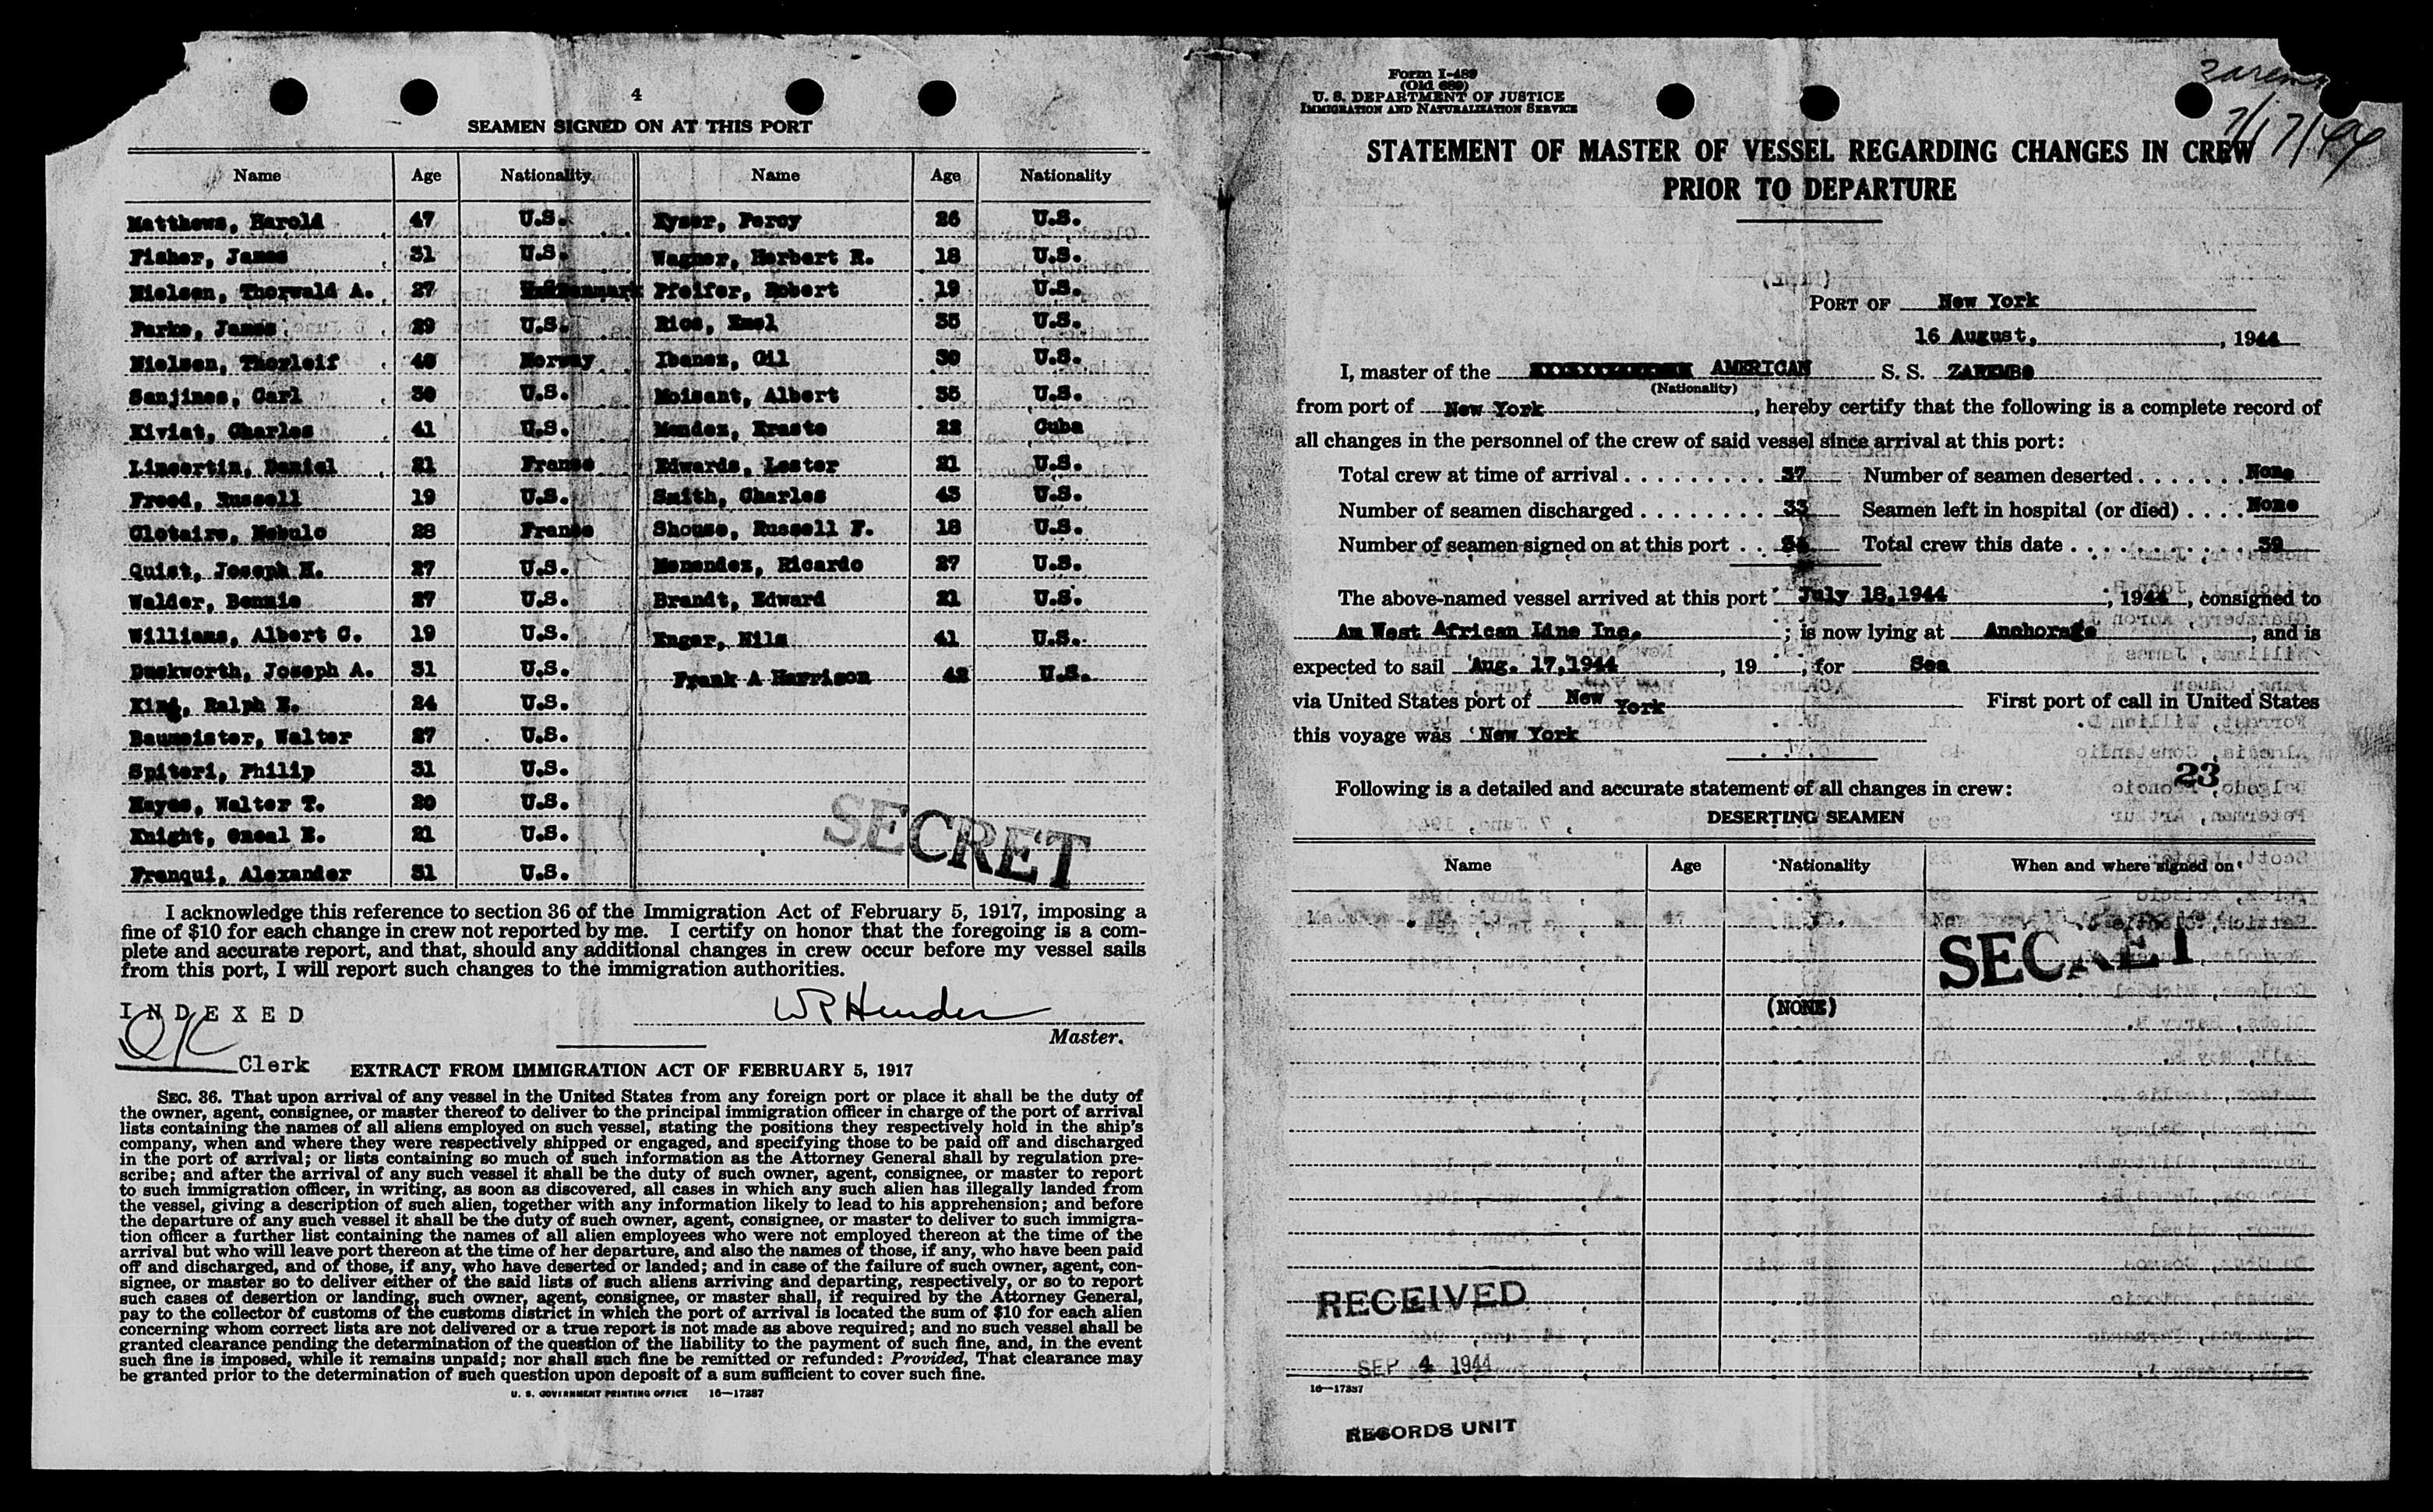 4
SEAMEN SIGNED ON AT THIS PORT
Name Age Nationality Name Age Nationality
Matthews, Harold 47 U.S. Kyser, Percy 26 U.S.
Fisher, James 31 U.S. Wagner, Herbert R. 18 U.S.
Nielsen, Thorwald A. 27 Denmark Pfeifer, Robert 19 U.S.
Parks, James 29 U.S. Rice, Emel 35 U.S.
Nielsen, Thorleif 40 Norway Ibanez, Gil 30 U.S.
Sanjines, Carl 30 U.S. Moisant, Albert 35 U.S.
Kiviat, Charles 41 U.S. Mendez, Erasto 22 Cuba
Lincertin, Daniel 21 France Edwards, Lester 21 U.S.
Freed, Russell 19 U.S. Smith, Charles 43 U.S.
Clotaire, Nebulo 28 France Shouse, Russell F. 18 U.S.
Quist, Joseph H. 27 U.S. Menendez, Ricardo 27 U.S.
Walder, Bennie 27 U.S. Brandt, Edward 21 U.S.
Williams, Albert C. 19 U.S. Enger, Nils 41 U.S.
Duckworth, Joseph A. 31 U.S. Frank A Harrison 42 U.S.
King, Ralph E. 24 U.S.
Baumeister, Walter 27 U.S.
Spiteri, Philip 31 U.S.
Hayes, Walter T. 20 U.S.
Knight, Oneal E. 21 U.S.
Franqui, Alexander 31 U.S.
SECRET
I acknowledge this reference to section 36 of the Immigration Act of February 5, 1917, imposing a
fine of $10 for each change in crew not reported by me. I certify on honor that the foregoing is a com-
plete and accurate report, and that, should any additional changes in crew occur before my vessel sails
from this port, I will report such changes to the immigration authorities.
INDEXED
Clerk
Master.
EXTRACT FROM IMMIGRATION ACT OF FEBRUARY 5, 1917
SEC. 36. That upon arrival of any vessel in the United States from any foreign port or place it shall be the duty of
the owner, agent, consignee, or master thereof to deliver to the principal immigration officer in charge of the port of arrival
lists containing the names of all aliens employed on such vessel, stating the positions they respectively hold in the ship's
company, when and where they were respectively shipped or engaged, and specifying those to be paid off and discharged
in the port of arrival; or lists containing so much of such information as the Attorney General shall by regulation pre-
scribe; and after the arrival of any such vessel it shall be the duty of such owner, agent, consignee, or master to report
to such immigration officer, in writing, as soon as discovered, all cases in which any such alien has illegally landed from
the vessel, giving a description of such alien, together with any information likely to lead to his apprehension; and before
the departure of any such vessel it shall be the duty of such owner, agent, consignee, or master to deliver to such immigra-
tion officer a further list containing the names of all alien employees who were not employed thereon at the time of the
arrival but who will leave port thereon at the time of her departure, and also the names of those, if any, who have been paid
off and discharged, and of those, if any, who have deserted or landed; and in case of the failure of such owner, agent, con-
signee, or master so to deliver either of the said lists of such aliens arriving and departing, respectively, or so to report
such cases of desertion or landing, such owner, agent, consignee, or master shall, if required by the Attorney General,
pay to the collector of customs of the customs district in which the port of arrival is located the sum of $10 for each alien
concerning whom correct lists are not delivered or a true report is not made as above required; and no such vessel shall be
granted clearance pending the determination of the question of the liability to the payment of such fine, and, in the event
such fine is imposed, while it remains unpaid; nor shall such fine be remitted or refunded: Provided, That clearance may
be granted prior to the determination of such question upon deposit of a sum sufficient to cover such fine.
U. S. GOVERNMENT PRINTING OFFICE 16—17287
Form I-489
(Old 689)
U. S. DEPARTMENT OF JUSTICE
IMMIGRATION AND NATURALIZATION SERVICE
7/17/44
STATEMENT OF MASTER OF VESSEL REGARDING CHANGES IN CREW
PRIOR TO DEPARTURE
PORT OF New York
16 August, , 1944
I, master of the AMERICAN S. S. ZAREMBO
(Nationality)
from port of New York , hereby certify that the following is a complete record of
all changes in the personnel of the crew of said vessel since arrival at this port:
Total crew at time of arrival . . . . . . . . . 37 Number of seamen deserted . . . . . . . None
Number of seamen discharged . . . . . . . . 33 Seamen left in hospital (or died) . . . . None
Number of seamen signed on at this port . . 34 Total crew this date . . . . . . . . . . . 39
The above-named vessel arrived at this port July 18,1944 , 1944 , consigned to
Am West African Line Inc. ; is now lying at Anchorage , and is
expected to sail Aug. 17,1944 , 19 ; for Sea
via United States port of New York First port of call in United States
this voyage was New York
23
Following is a detailed and accurate statement of all changes in crew:
DESERTING SEAMEN
Name Age Nationality When and where signed on
SECRET
(NONE)
RECEIVED
SEP 4 1944
16—17287
RECORDS UNIT